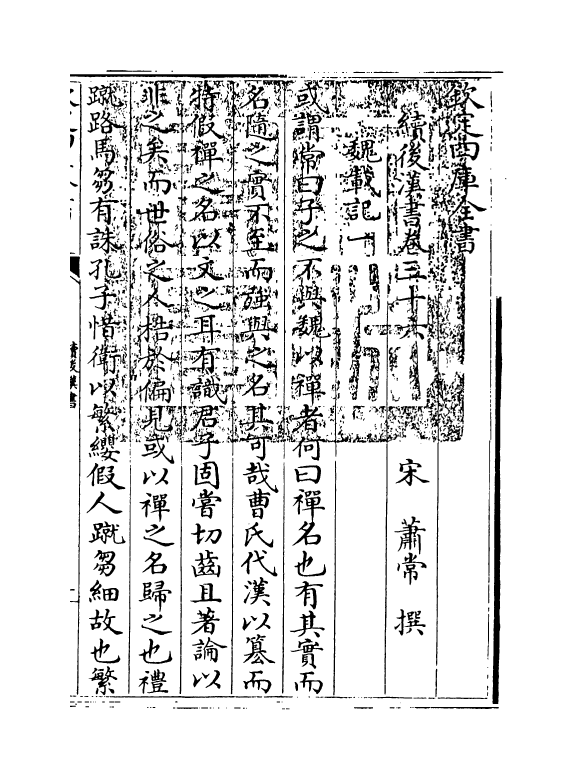 欽定四庫全書
續後漢書卷三十六
宋 蕭常 撰
魏載記一
或謂常曰子之不與魏以禪者何曰禪名也有其實而
名隨之實不至而強與之名其可哉曹氏代漢以簒而
特假禪之名以文之耳有識君子固嘗切齒且著論以
非之矣而世俗之人梏於偏見或以禪之名歸之也禮
蹴路馬芻有誅孔子惜衛以繁纓假人蹴芻細故也繁
續後漢書